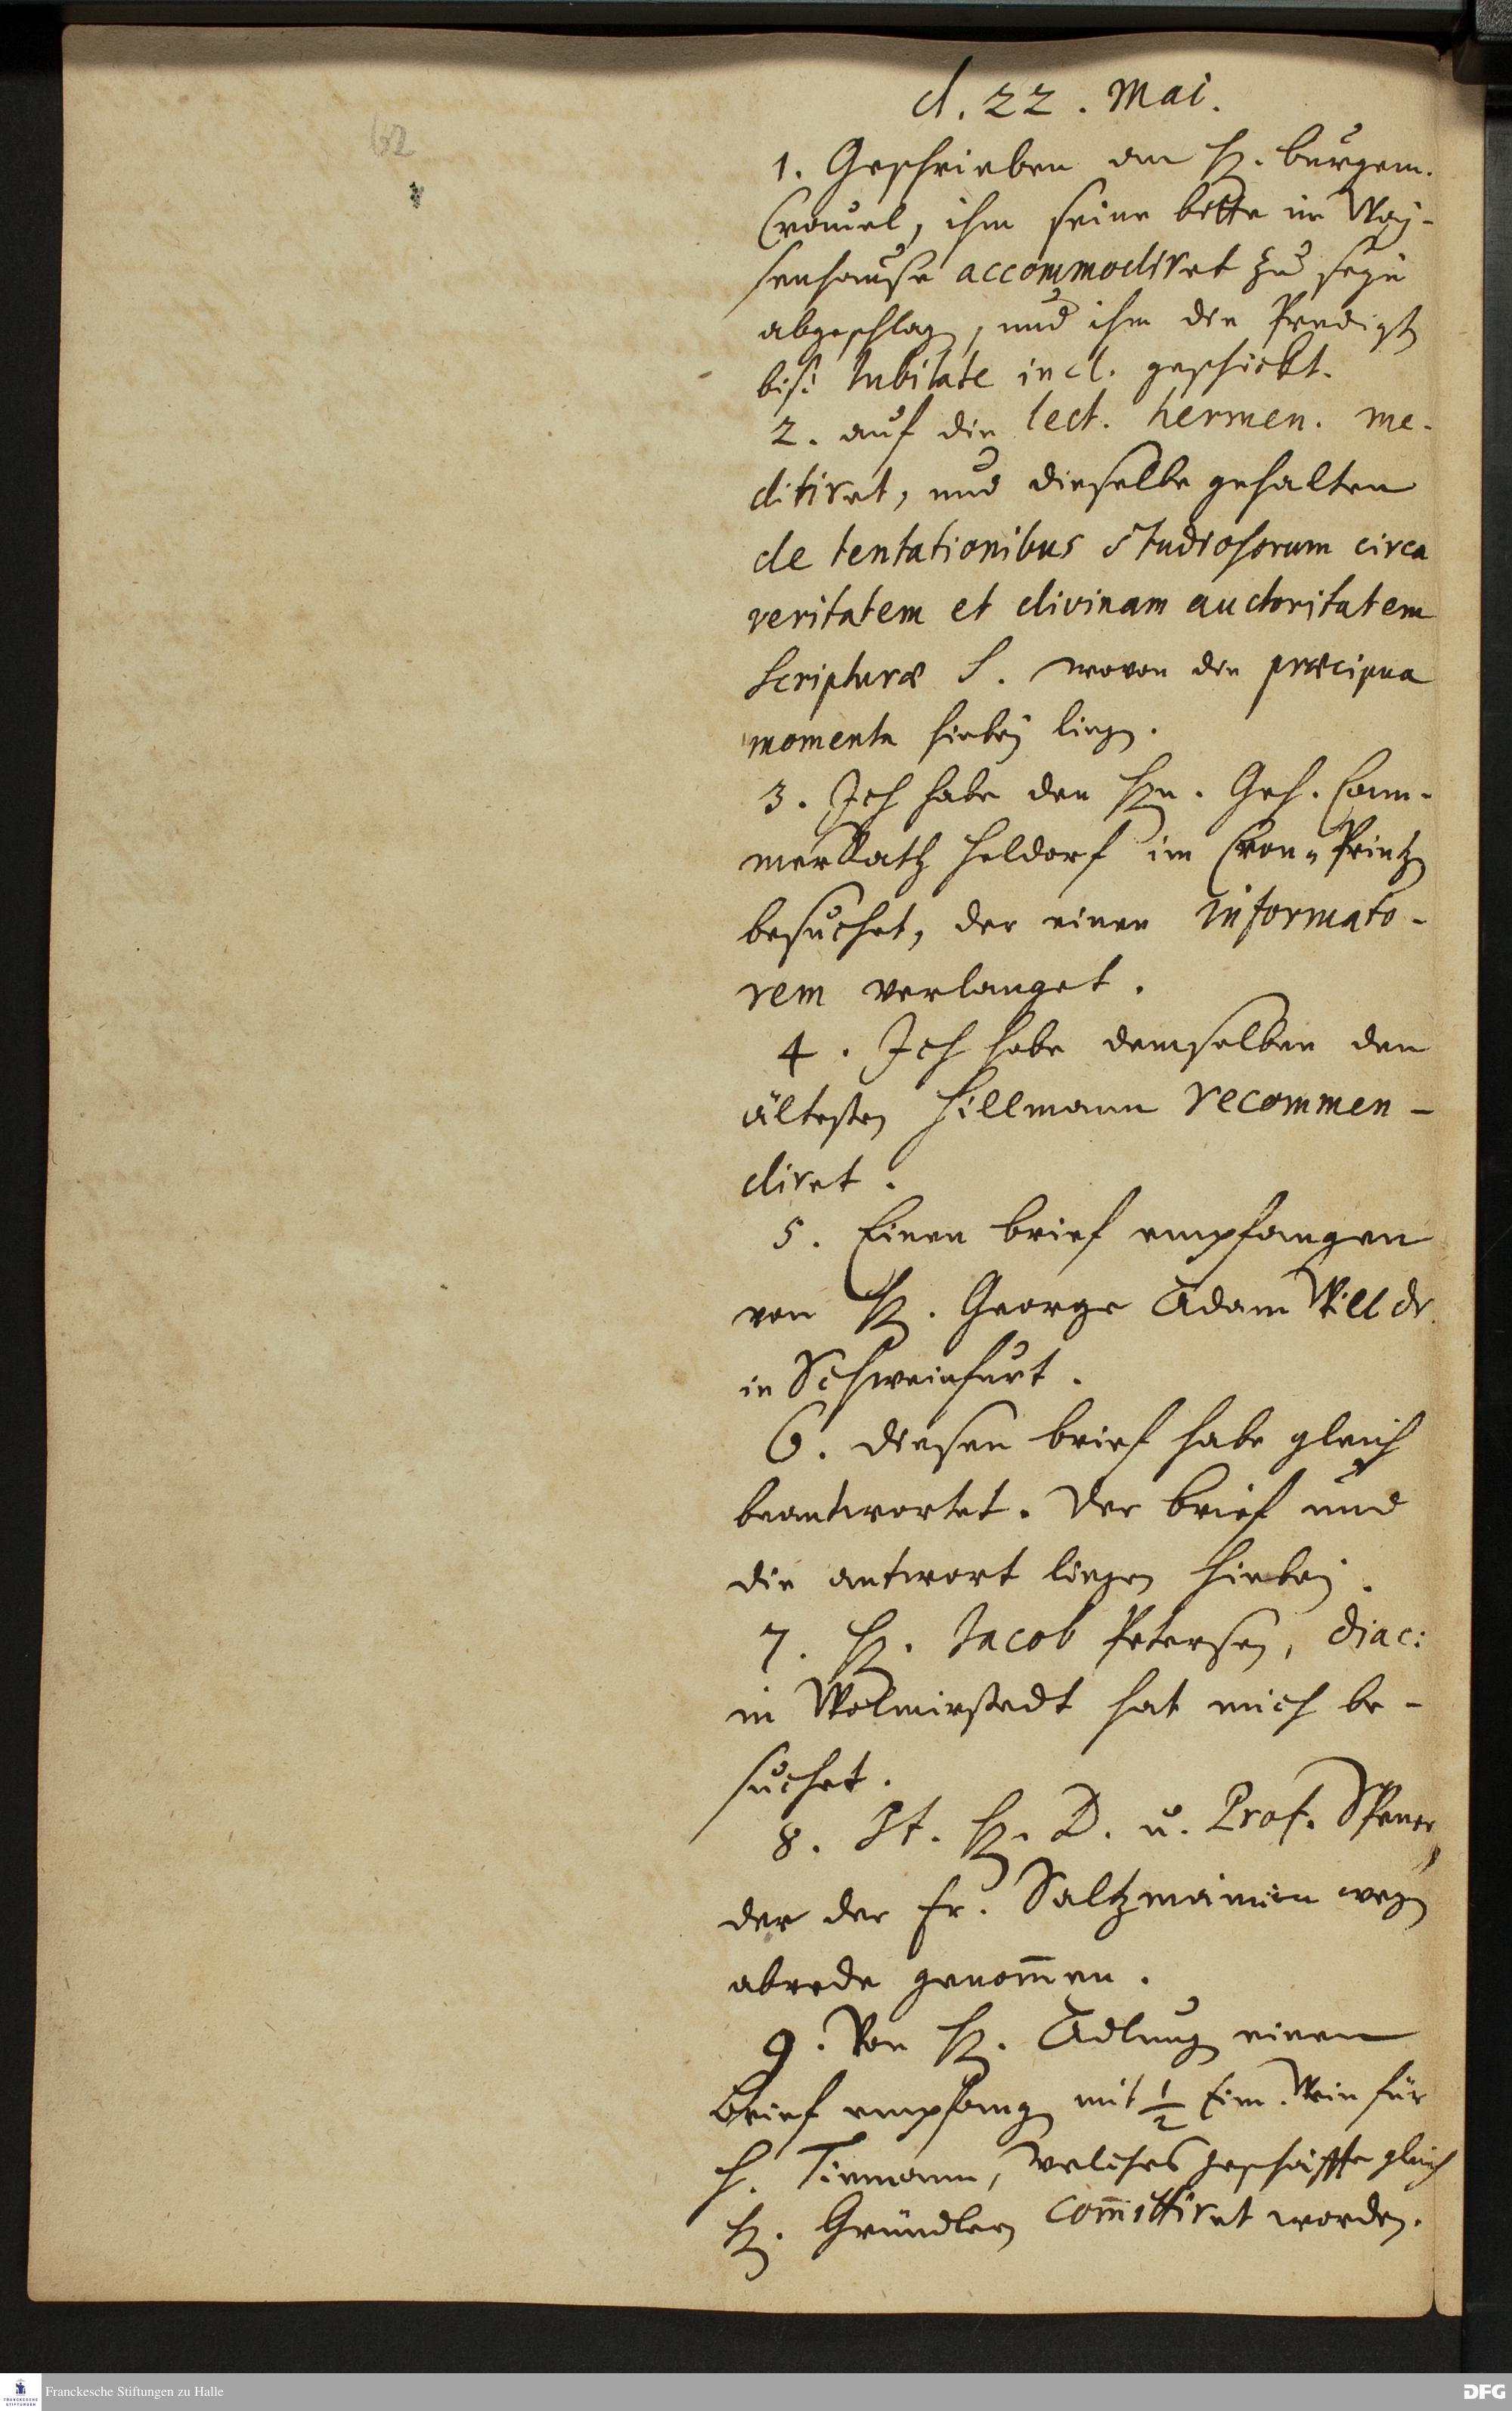 62
d. 22. Mai.
1. Geschrieben an H. burgem.
Cramel, ihm seine bitte im Way-
senhause accommodiret zu seyn
abgeschlagen, und ihm die Predigten
biß Iubilate incl. geschickt.
2. auf die lect. hermen. me-
ditiret, und dieselbe gehalten
de tentationibus Studiosorum circa
veritatem et divinam auctoritatem
Scripturæ S. wovon die præcipua
momenta hiebey liegen.
3. Ich habe den Hrn. Geh. Cam-
merRath Heldorf im Cron-Printzen
besuchet, der einen informato-
rem verlanget.
4. Ich habe demselben den
ältesten Hillmann recommen-
diret.
5. Einen brief empfangen
von H. George Adam Will dr.
in Schweinfurt.
6. diesen brief habe gleich
beantwortet. Der brief und
die antwort liegen hiebey.
7. H. Jacob Petersen, diac:
in Wolmirstedt hat mich be-
suchet.
8. It. H. D. u. Prof. Spener,
der der Fr. Saltzmannin wegen
abrede genommen.
9. Von H. Adlung einen
Brief empfangen mit 1/2 Eim. Wein für
H. Tiemann, welches geschäffte gleich
H. Gründlern committiret worden.
Franckesche Stiftungen zu Halle
FRANCKESCHE STIFTUNGEN
DFG